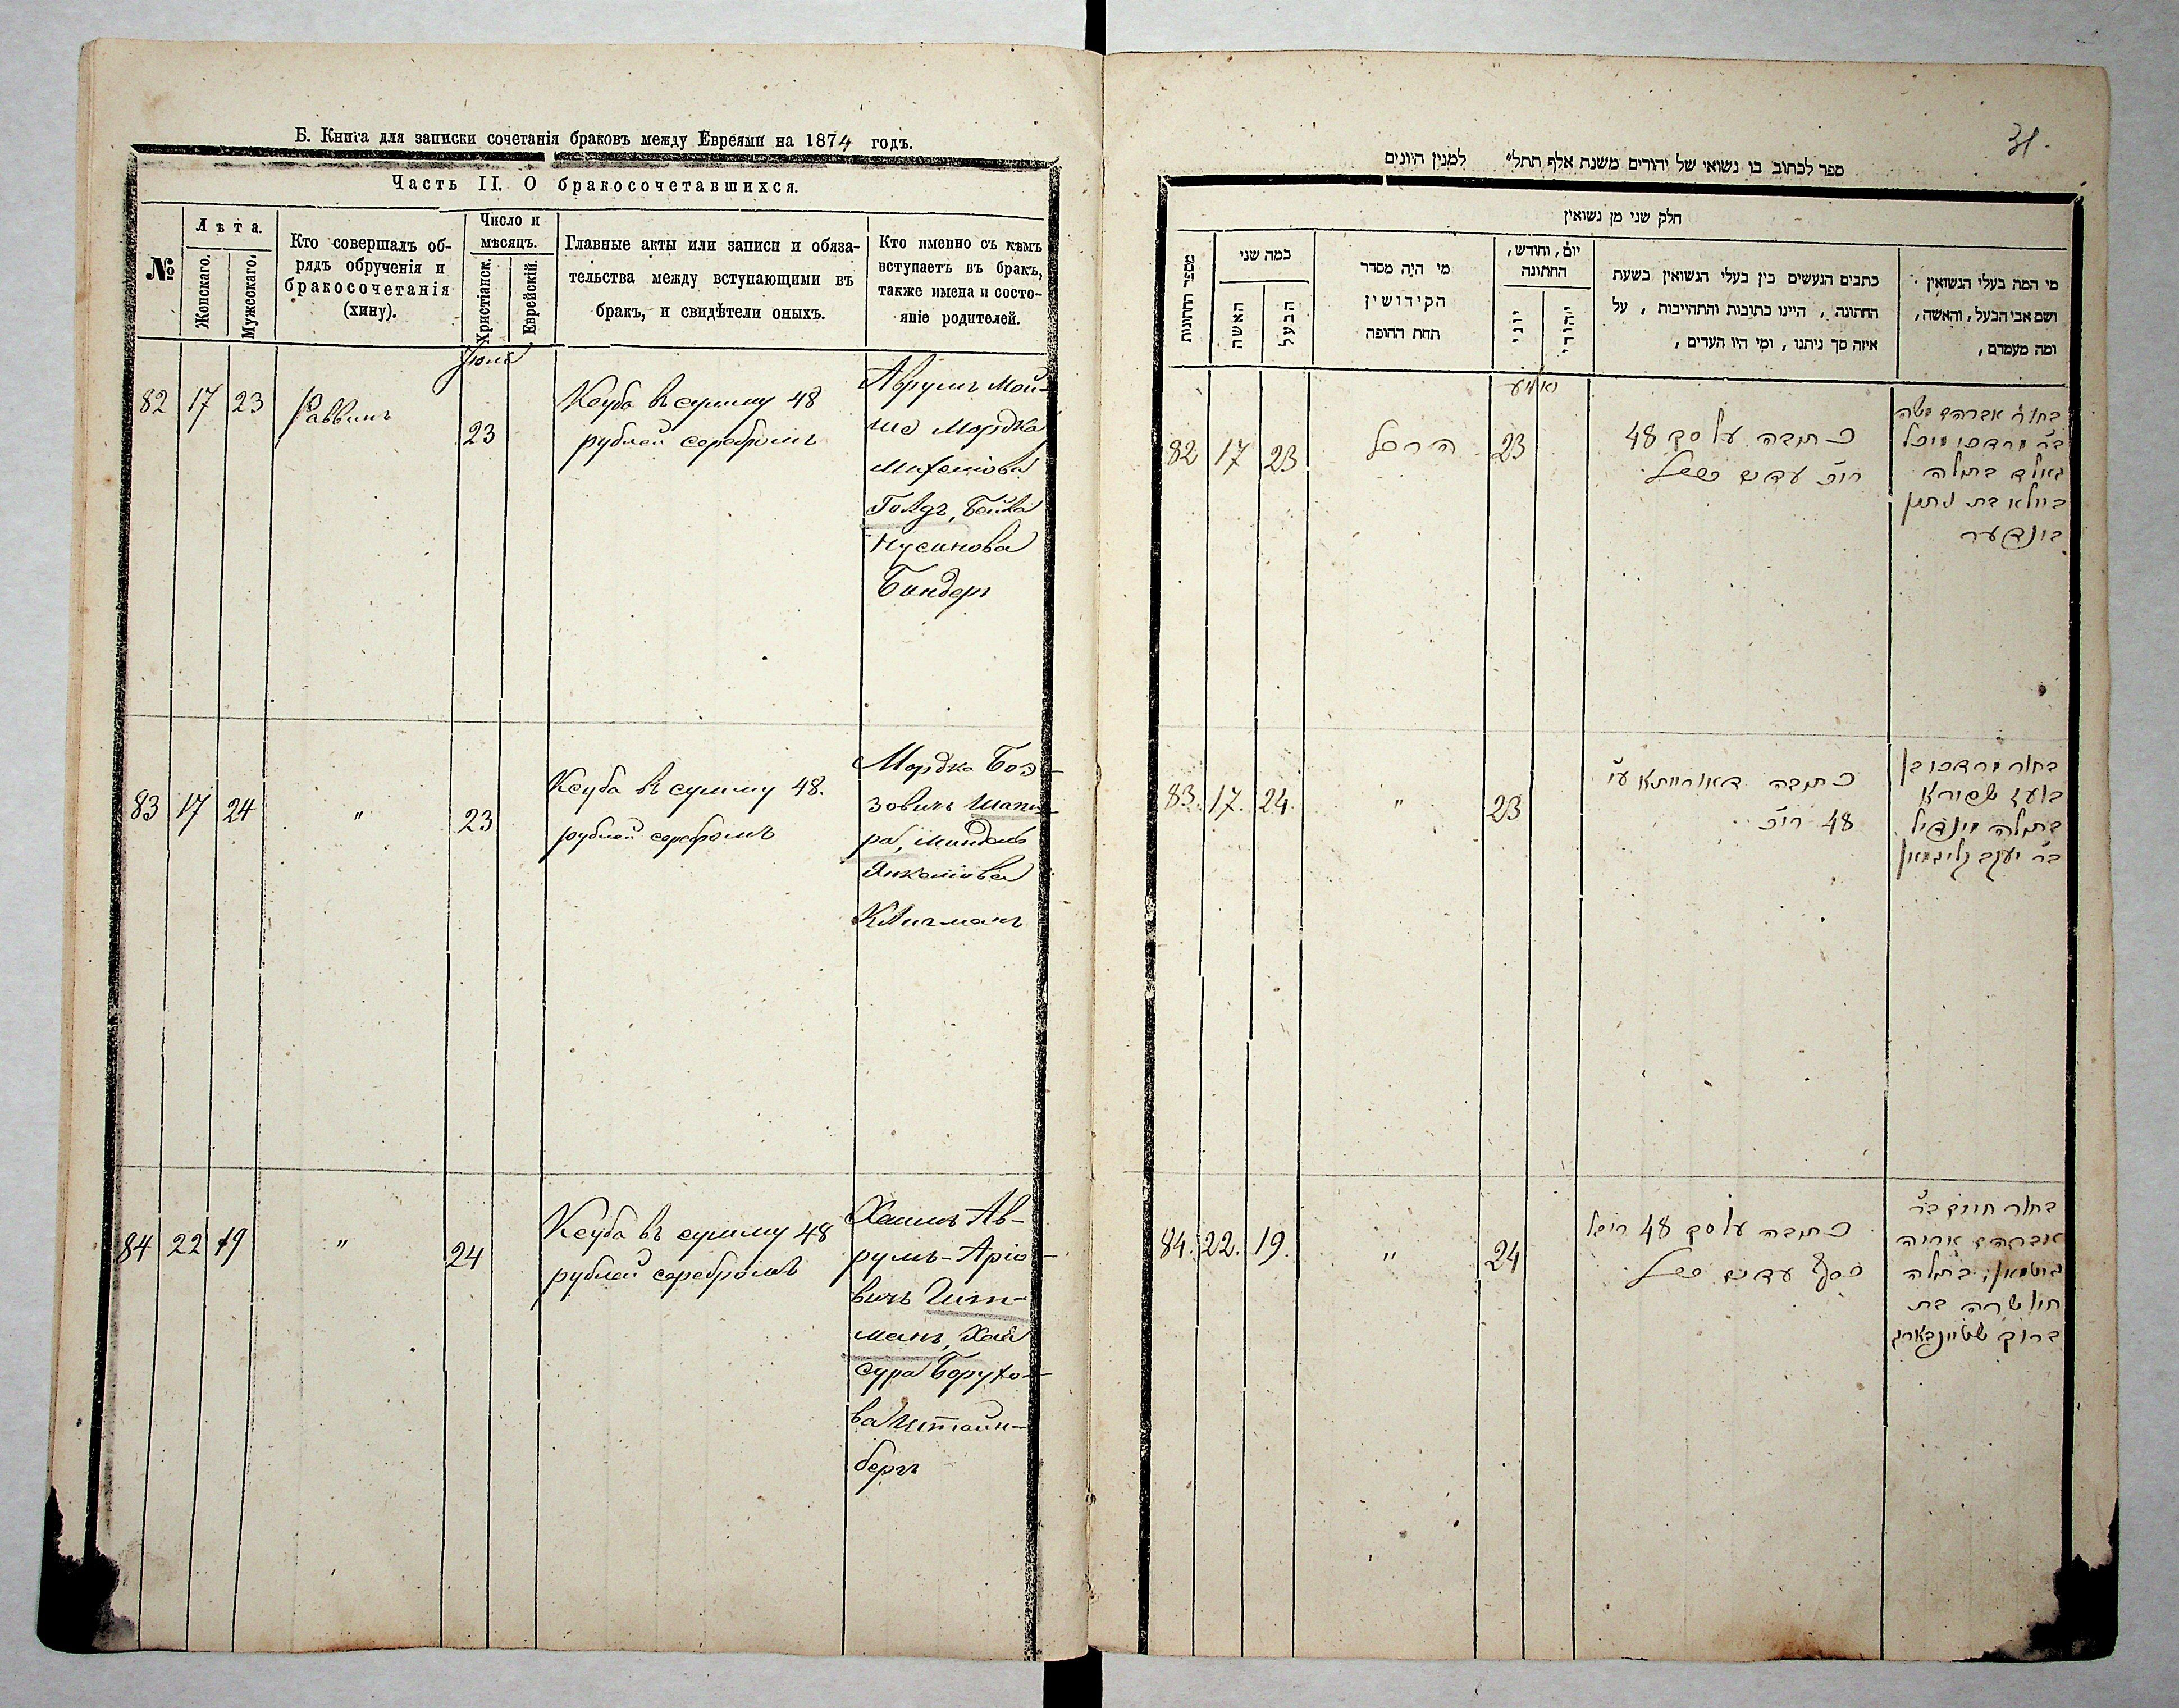 Б. Книга для записки сочетанія браковъ между Евреями на 1874 годъ.
Часть II. О бракосочетавшихся.
№
Лѣта.
Женскаго.
Мужескаго.
Кто совершалъ об-
рядъ обрученія и
бракосочетанія
(хипу).
Число и
мѣсяцъ.
Христіанск.
Еврейскій.
Главные акты или записи и обяза-
тельства между вступающими въ
бракъ, и свидѣтели оныхъ.
Кто именно съ кѣмъ
вступаетъ въ бракъ,
также имена и состо-
яніе родителей.
82 17 23
Раввинъ
23
рублей серебромъ
въ сумму 48
Аврумъ Мой-
ше Мордка
Голдъ, Бейла
Нусинова
Биндеръ
83 17 24
"
23
Ксуба въ сумму 48.
рублей серебромъ
Мордко Боа-
зовичъ Шапи-
ра, Миндель
Янкеліова
Клигманъ
84 22 19
"
24
Ксуба въ сумму 48
рублей серебромъ
Хаимъ Ав-
румъ-Аріо-
вичъ Гит-
манъ, Хая
Сура Борухо-
ва Штейн-
бергъ
31.
ספר לכתוב בו נשואי של יהודים משנת אלף תתל״ למנין היונים
חלק שני מן נשואין
מספר החתונות
כמה שני
האשה
הבעל
מי היה מסדר
הקידושין
תחת החופה
יום, וחודש,
החתונה
יוני
יהודי
כתבים הנעשים בין בעלי הנשואין בשעת
החתונה, היינו כתובות והתחייבות, על
איזה סך ניתנו, ומי היו העדים,
מי המה בעלי הנשואין
ושם אבי הבעל, והאשה,
ומה מעמדם,
82 17 23
23
כתובה על סך 48
בחור אברהם משה
בר מרדכי מיכל
גאלד בתולה
ביילא בת נתן
בינדער
83. 17. 24.
"
23
כתובה דאורייתא
48
בחור מרדכי בן
בועז שפירא
בתולה מינדיל
בר יעקב קליגמאן
84. 22. 19.
"
24
כתובה על סך 48
כסף עדים
בחור חיים בר
אברהם אריה
גוטמאן, בתולה
חיי שרה בת
ברוך שטיינבארג